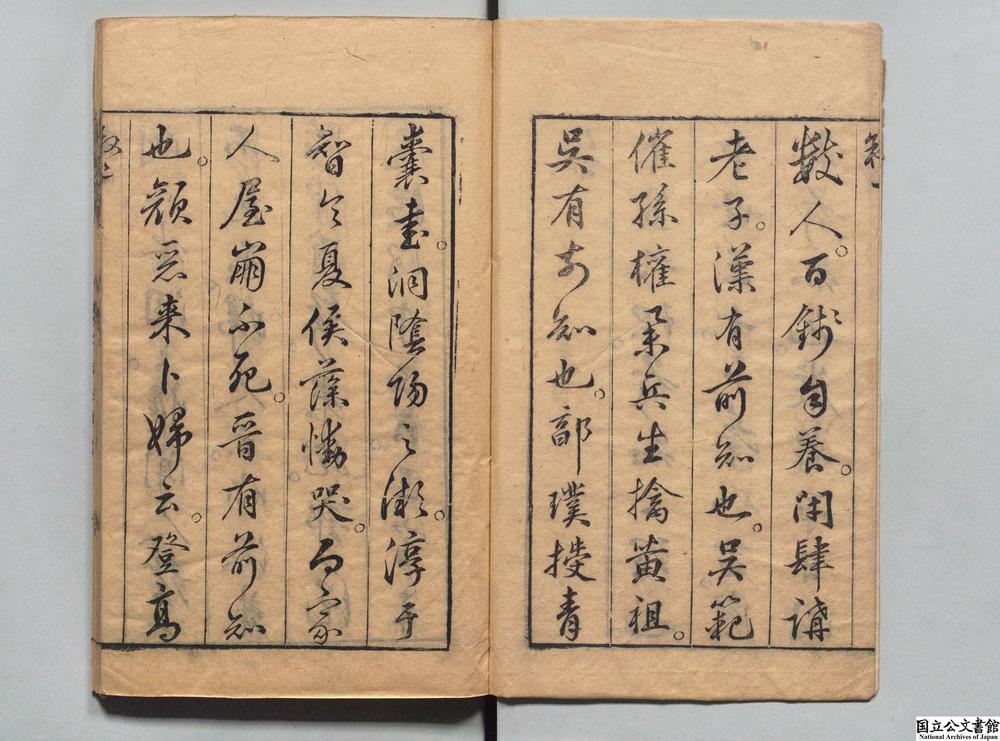 數人。百錢自養。閉肆講
老子。漢有前知也。吳範
催孫權舉兵生擒黃祖。
吳有前知也。郭璞授青
囊書。洞陰陽之術。淳于
智令夏侯藻慟哭。而家
人屋崩不死。晉有前知
也。顏惡来卜婦云。登高
国立公文書館
National Archives of Japan